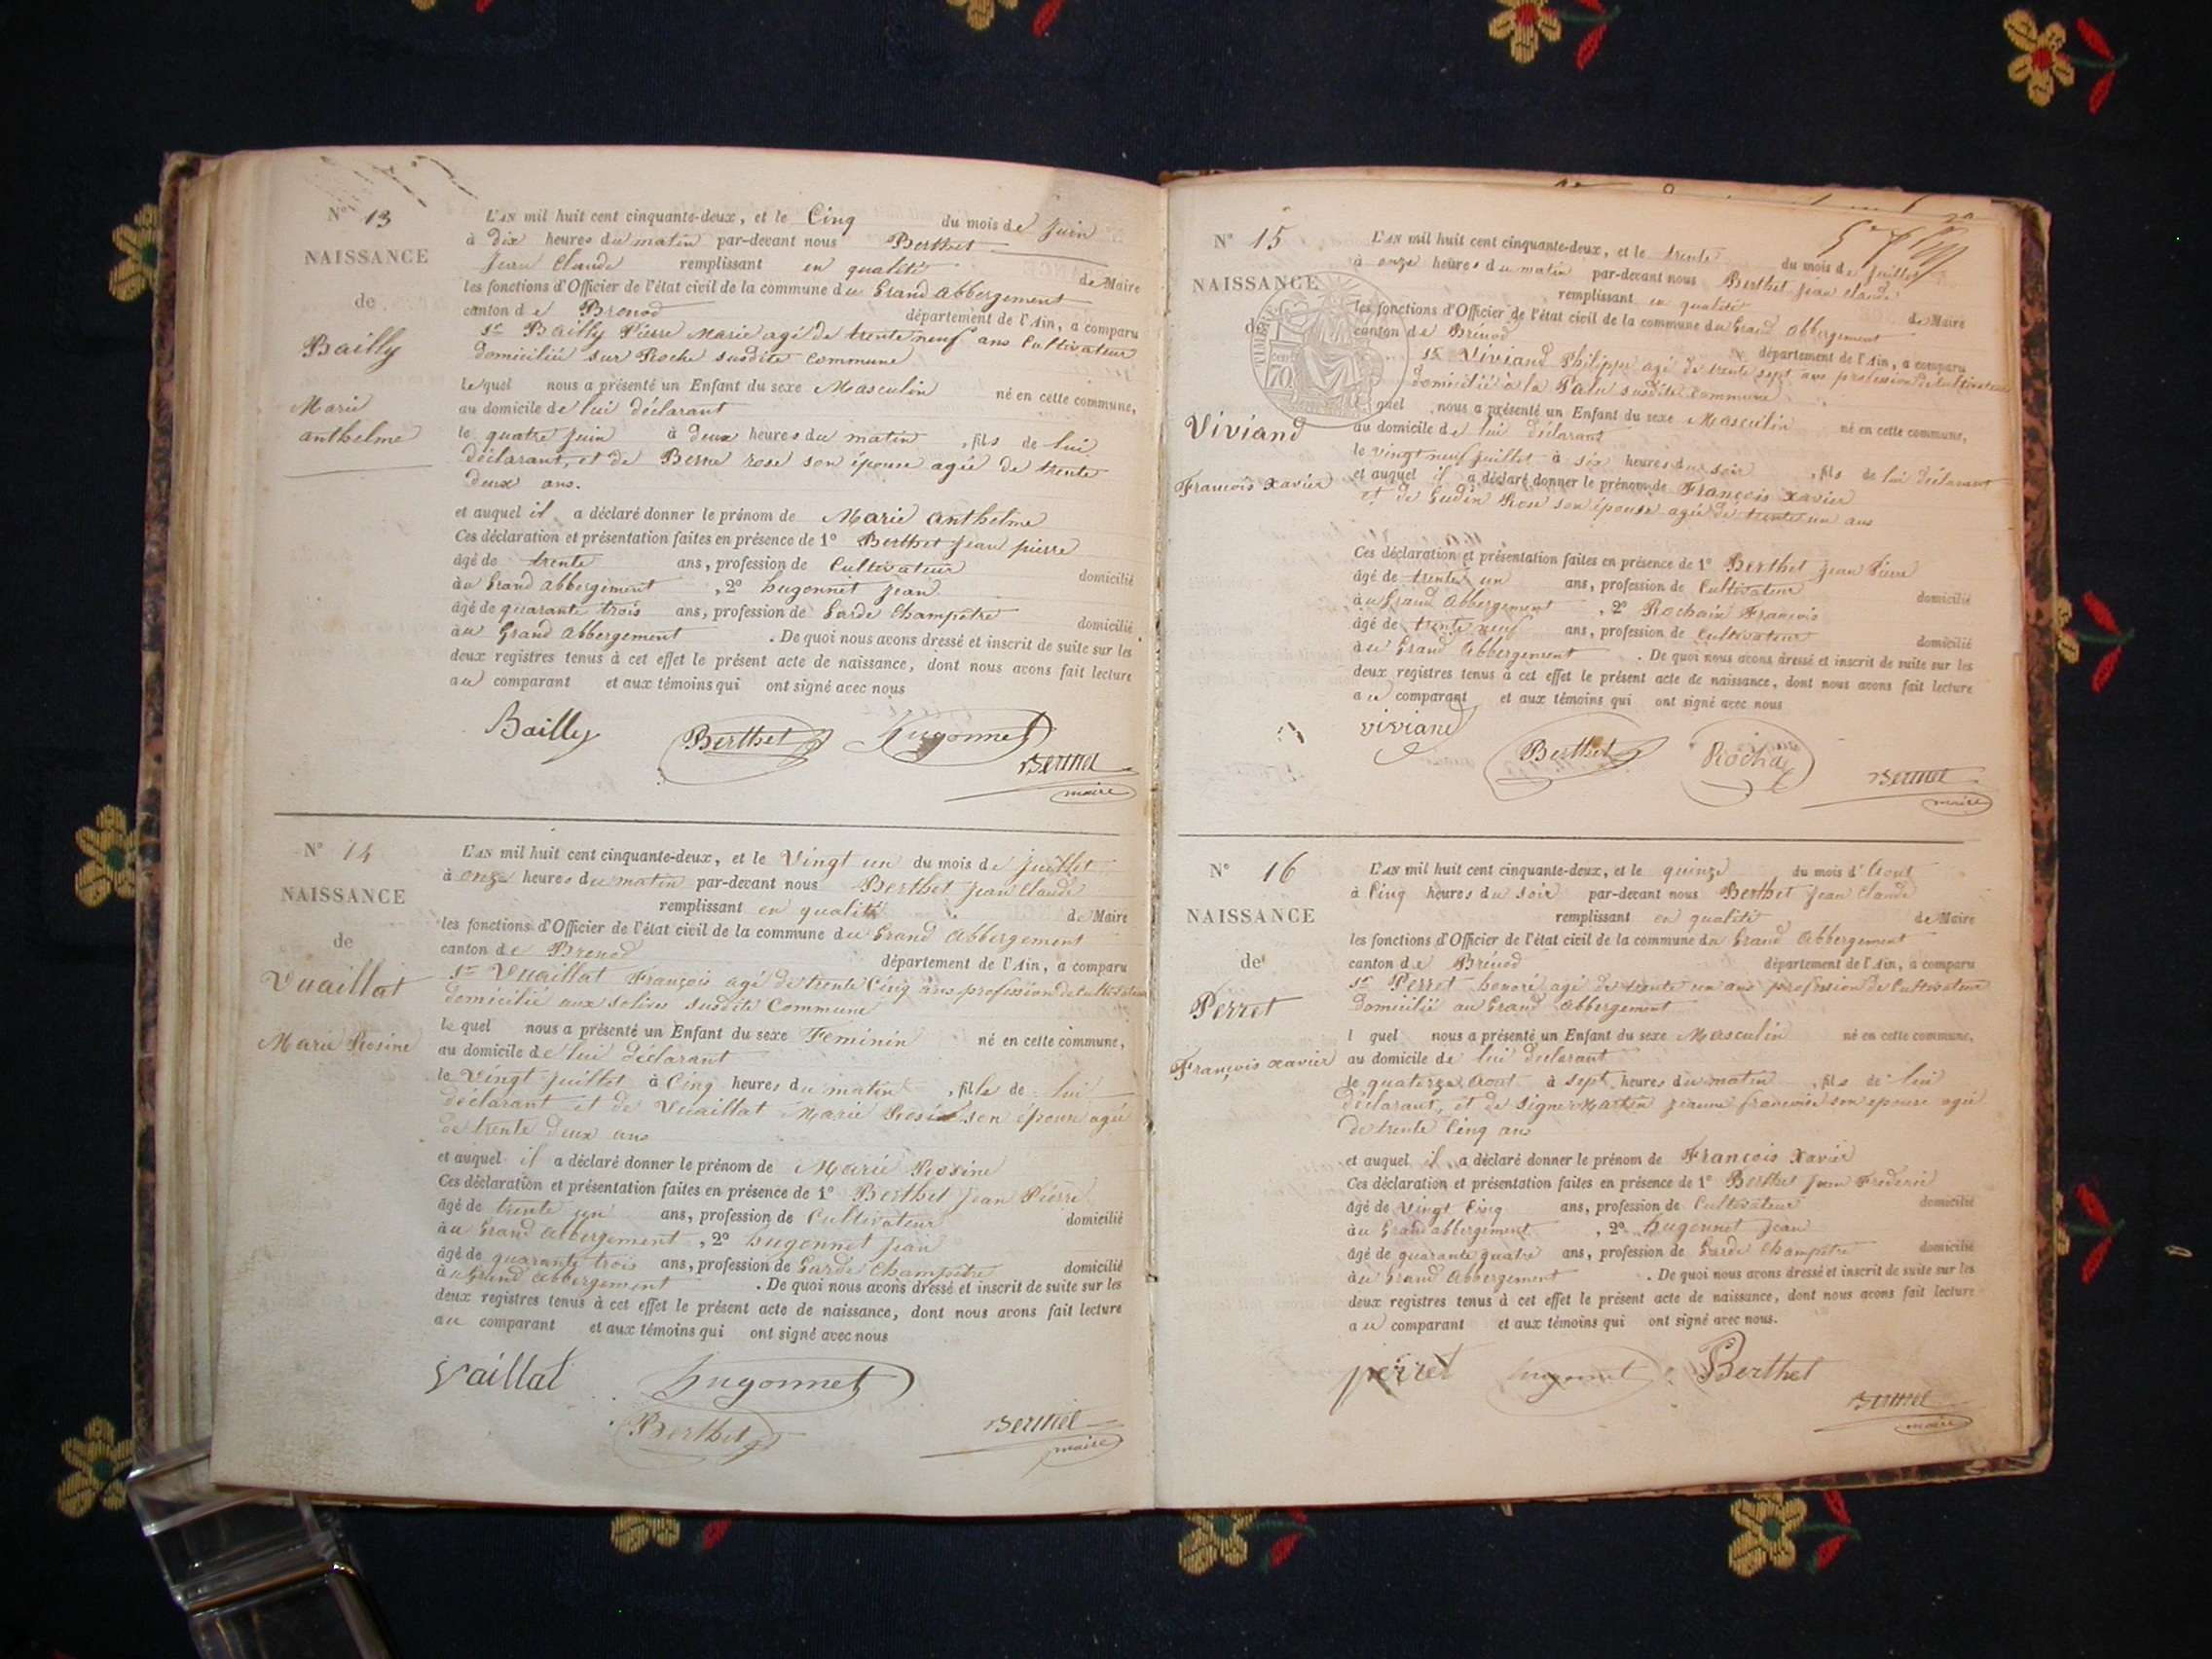 N° 13
NAISSANCE
de
Bailly
Marie
anthelme
L'AN mil huit cent cinquante-deux, et le Cinq du mois de Juin
à dix heures du matin par-devant nous Berthet
Jean Claude remplissant en qualité de Maire
les fonctions d'Officier de l'état civil de la commune du Grand abbergement
canton de Brenod département de l'Ain, a comparu
sr Bailly Pierre Marie agé de trente neuf ans Cultivateur
domicilié sur Roche susdite Commune
lequel nous a présenté un Enfant du sexe Masculin né en cette commune,
au domicile de lui déclarant
le quatre juin à deux heures du matin, fils de lui
déclarant, et de Berne rose son épouse agée de trente
deux ans.
et auquel il a déclaré donner le prénom de Marie anthelme
Ces déclaration et présentation faites en présence de 1° Berthet Jean pierre
âgé de trente ans, profession de Cultivateur domicilié
au Grand abbergement, 2° hugonnet jean
âgé de quarante trois ans, profession de Garde Champêtre domicilié
au Grand abbergement. De quoi nous avons dressé et inscrit de suite sur les
deux registres tenus à cet effet le présent acte de naissance, dont nous avons fait lecture
au comparant et aux témoins qui ont signé avec nous
Bailly Berthet Hugonnet
Berthet
maire
N° 14
NAISSANCE
de
Vuaillat
Marie Rosine
L'AN mil huit cent cinquante-deux, et le Vingt un du mois de juillet
à onze heures du matin par-devant nous Berthet Jean Claude
remplissant en qualité de Maire
les fonctions d'Officier de l'état civil de la commune du Grand abbergement
canton de Brenod département de l'Ain, a comparu
sr Vuaillat François agé de trente Cinq ans profession de cultivateur
domicilié aux solives susdite Commune
lequel nous a présenté un Enfant du sexe Feminin né en cette commune,
au domicile de lui déclarant
le Vingt juillet à Cinq heures du matin, fille de lui
déclarant et de Vuaillat Marie son épouse agée
de trente deux ans
et auquel il a déclaré donner le prénom de Marie Rosine
Ces déclaration et présentation faites en présence de 1° Berthet Jean Pierre
âgé de trente un ans, profession de Cultivateur domicilié
au Grand abbergement, 2° hugonnet jean
âgé de quarante trois ans, profession de Garde Champêtre domicilié
au Grand abbergement. De quoi nous avons dressé et inscrit de suite sur les
deux registres tenus à cet effet le présent acte de naissance, dont nous avons fait lecture
au comparant et aux témoins qui ont signé avec nous
Vaillat Hugonnet
Berthet Berthet
maire
N° 15
NAISSANCE
de
Viviand
François Xavier
TIMBRE
70
L'AN mil huit cent cinquante-deux, et le trente du mois de juillet
à onze heures du matin par-devant nous Berthet Jean Claude
remplissant en qualité de Maire
les fonctions d'Officier de l'état civil de la commune du Grand abbergement
canton de Brénod département de l'Ain, a comparu
sr Viviand Philippe agé de trente sept ans profession de Cultivateur
domicilié à la Palu susdite Commune
quel nous a présenté un Enfant du sexe Masculin né en cette commune,
au domicile de lui déclarant
le vingt neuf juillet à six heures du soir, fils de lui déclarant
et auquel il a déclaré donner le prénom de François Xavier
et de Gudin Rose son épouse agée de trente un ans
Ces déclaration et présentation faites en présence de 1° Berthet Jean Pierre
âgé de trente un ans, profession de Cultivateur domicilié
au Grand abbergement, 2° Rochaix François
âgé de trente neuf ans, profession de Cultivateur domicilié
au Grand abbergement. De quoi nous avons dressé et inscrit de suite sur les
deux registres tenus à cet effet le présent acte de naissance, dont nous avons fait lecture
au comparant et aux témoins qui ont signé avec nous
viviand Berthet Rochaix
Berthet
maire
N° 16
NAISSANCE
de
Perret
François xavier
L'AN mil huit cent cinquante-deux, et le quinze du mois d'Aout
à Cinq heures du soir par-devant nous Berthet Jean Claude
remplissant en qualité de Maire
les fonctions d'Officier de l'état civil de la commune du Grand abbergement
canton de Brénod département de l'Ain, a comparu
sr Perret honoré agé de trente un ans profession de Cultivateur
domicilié au Grand abbergement
l quel nous a présenté un Enfant du sexe Masculin né en cette commune,
au domicile de lui declarant
le quatorze Aout à sept heures du matin, fils de lui
déclarant, et de Martin jeanne françoise son epouse agée
de trente Cinq ans
et auquel il a déclaré donner le prénom de François Xavier
Ces déclaration et présentation faites en présence de 1° Berthet Jean Frederic
âgé de vingt Cinq ans, profession de Cultivateur domicilié
au Grand abbergement, 2° hugonnet jean
âgé de quarante quatre ans, profession de Garde Champêtre domicilié
au Grand abbergement. De quoi nous avons dressé et inscrit de suite sur les
deux registres tenus à cet effet le présent acte de naissance, dont nous avons fait lecture
au comparant et aux témoins qui ont signé avec nous.
perret hugonnet Berthet
Berthet
maire